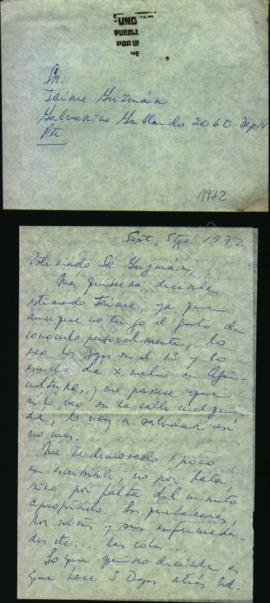 UNO
PUEBLO
POR
Sr.
Jaime Guzmán
Galvarino Gallardo 2060 - Dep
Pte
1972
Sept. 1972
Estimado Sr. Guzmán,
Más quisiera decirle
estimado Jaime, ya que
aunque no tengo el gusto de
conocerlo personalmente, lo
veo los Dgos en el 13 y lo
escucho x radio en
, y me parece que
si lo veo en la calle cualquier
día, lo voy a saludar así
no más.
Me he demorado 1 poco
en escribirle, no por lata,
sino por falta del minuto
apropiado. Los
los niños y sus enfermeda-
des etc... las colas...
Lo que quiero decirle es
que hace 3 Dgos atrás Ud.